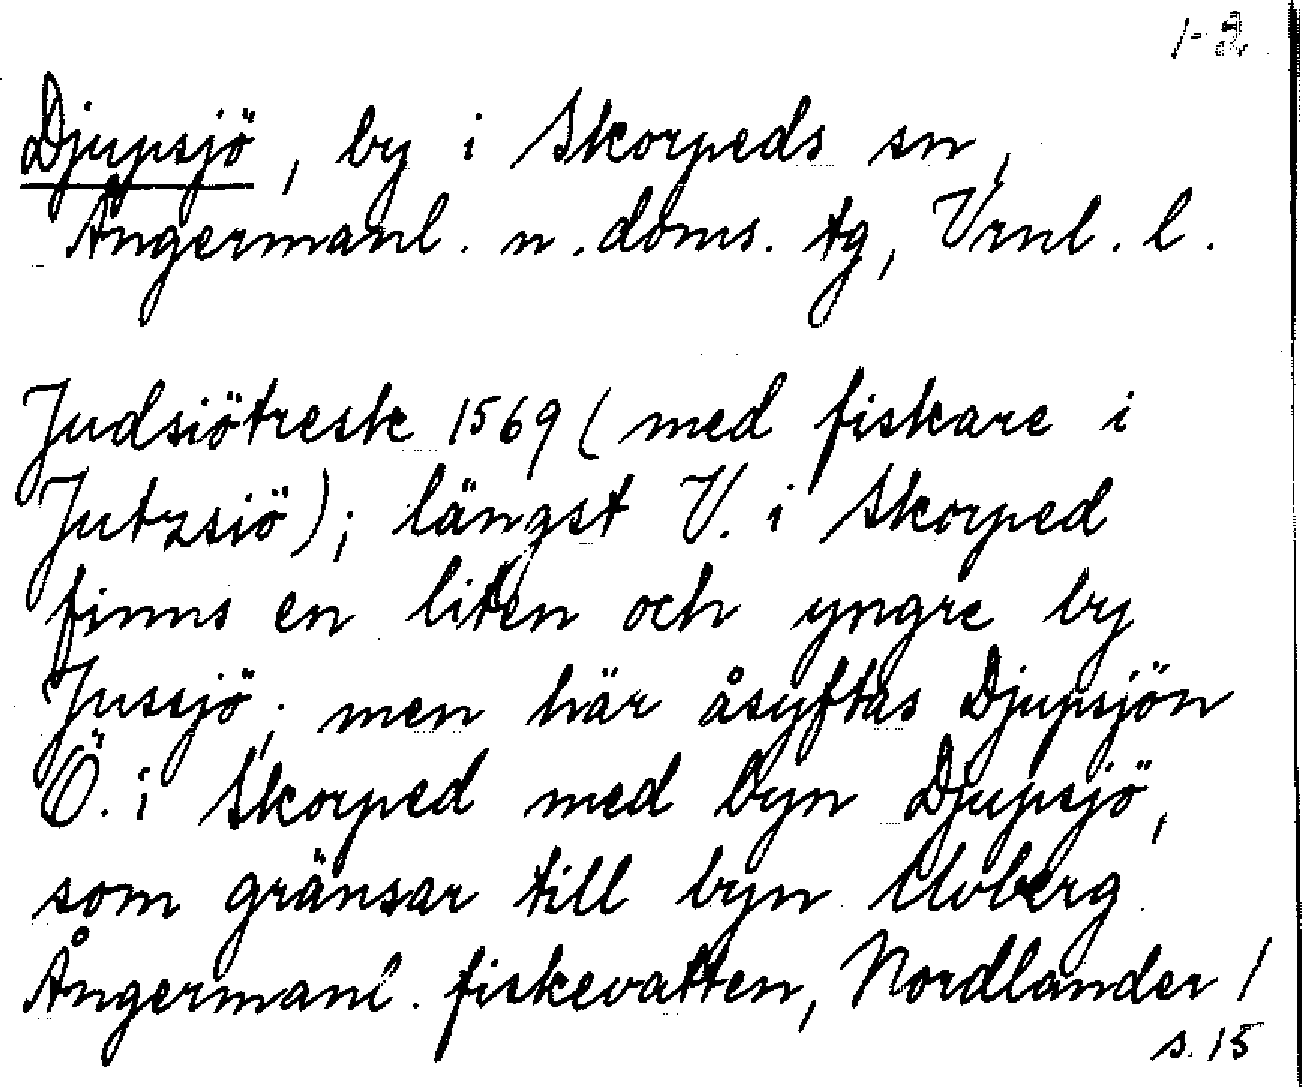 1-2
Djupsjö, by i Skorpeds sn,
Ångermanl. n. doms. tg, Vrnl. l.
Judsiötresk 1569 (med fiskare i
Jutzsiö); längst V. i Skorped
finns en liten och yngre by
Jussjö; men här åsyftas Djupsjön
Ö. i Skorped med byn Djupsjö,
som gränsar till byn Ulvberg.
Ångermanl. fiskevatten, Nordlander /
s. 15